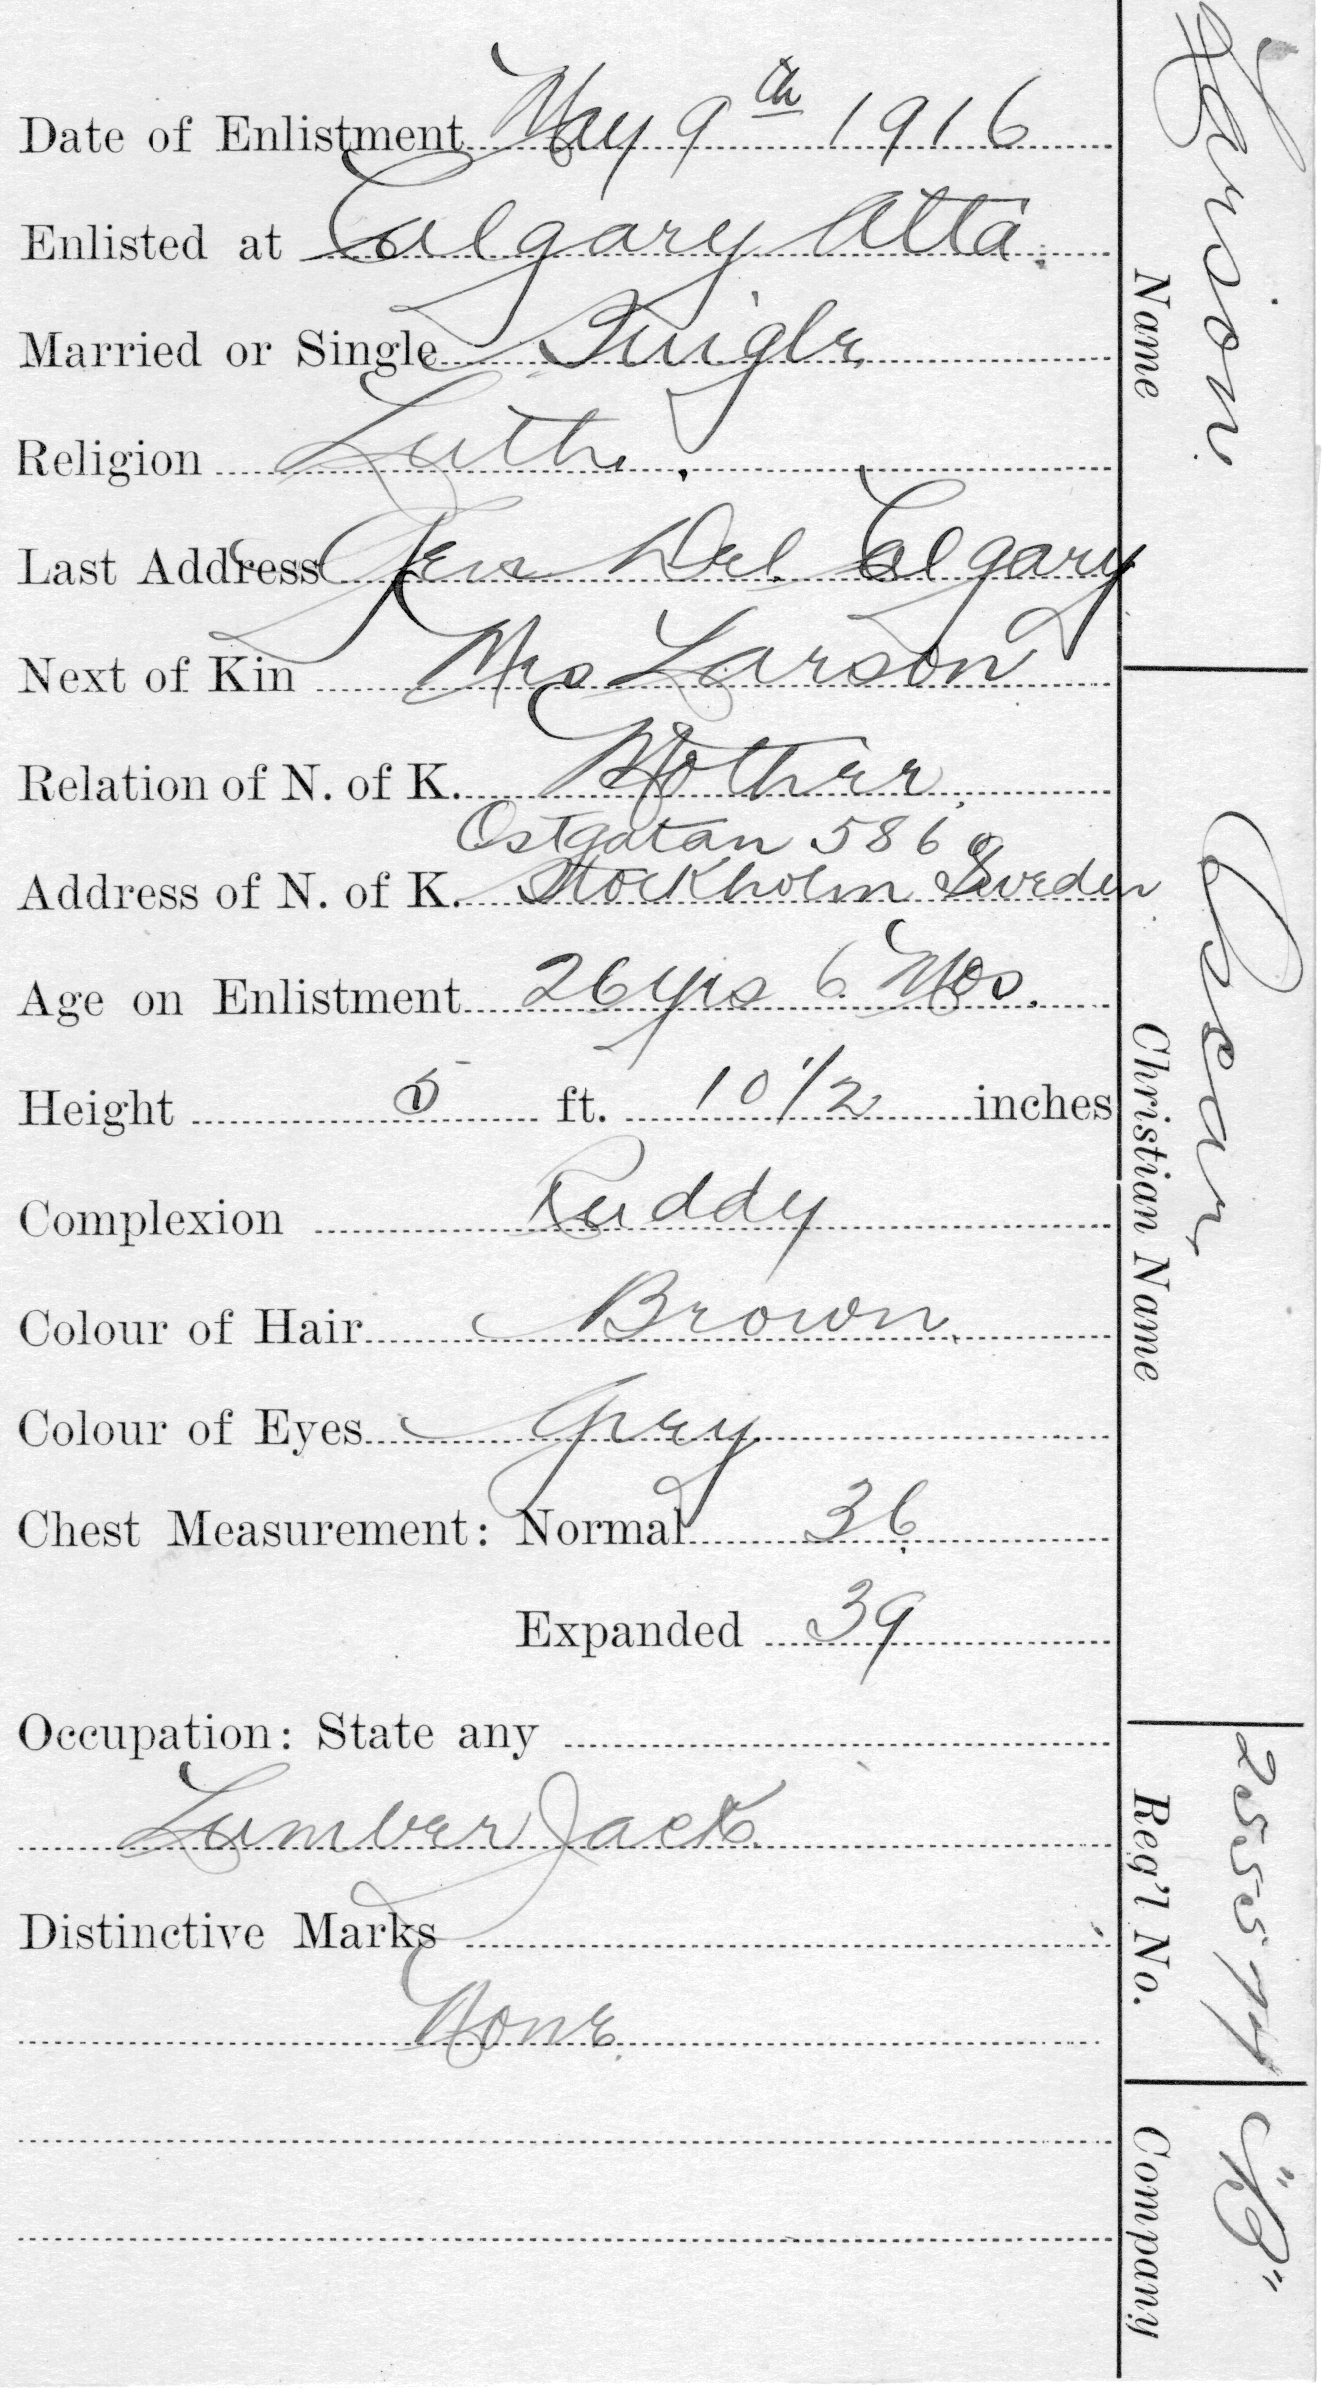 Date of Enlistment May 9th 1916
Enlisted at Calgary Alta.
Married or Single Single
Religion Luth.
Last Address Gen Del. Calgary
Next of Kin Mrs Larson
Relation of N. of K. Mother
Ostgatan 586
Address of N. of K. Stockholm Sweden
Age on Enlistment 26 yrs 6 Mos.
Height 5 ft. 10 1/2 inches
Complexion Ruddy
Colour of Hair Brown
Colour of Eyes Grey
Chest Measurement: Normal 36
Expanded 39
Occupation: State any
Lumber Jack
Distinctive Marks
None
Larson
Name
Oscar
Christian Name
Reg'l No.
"B"
Company